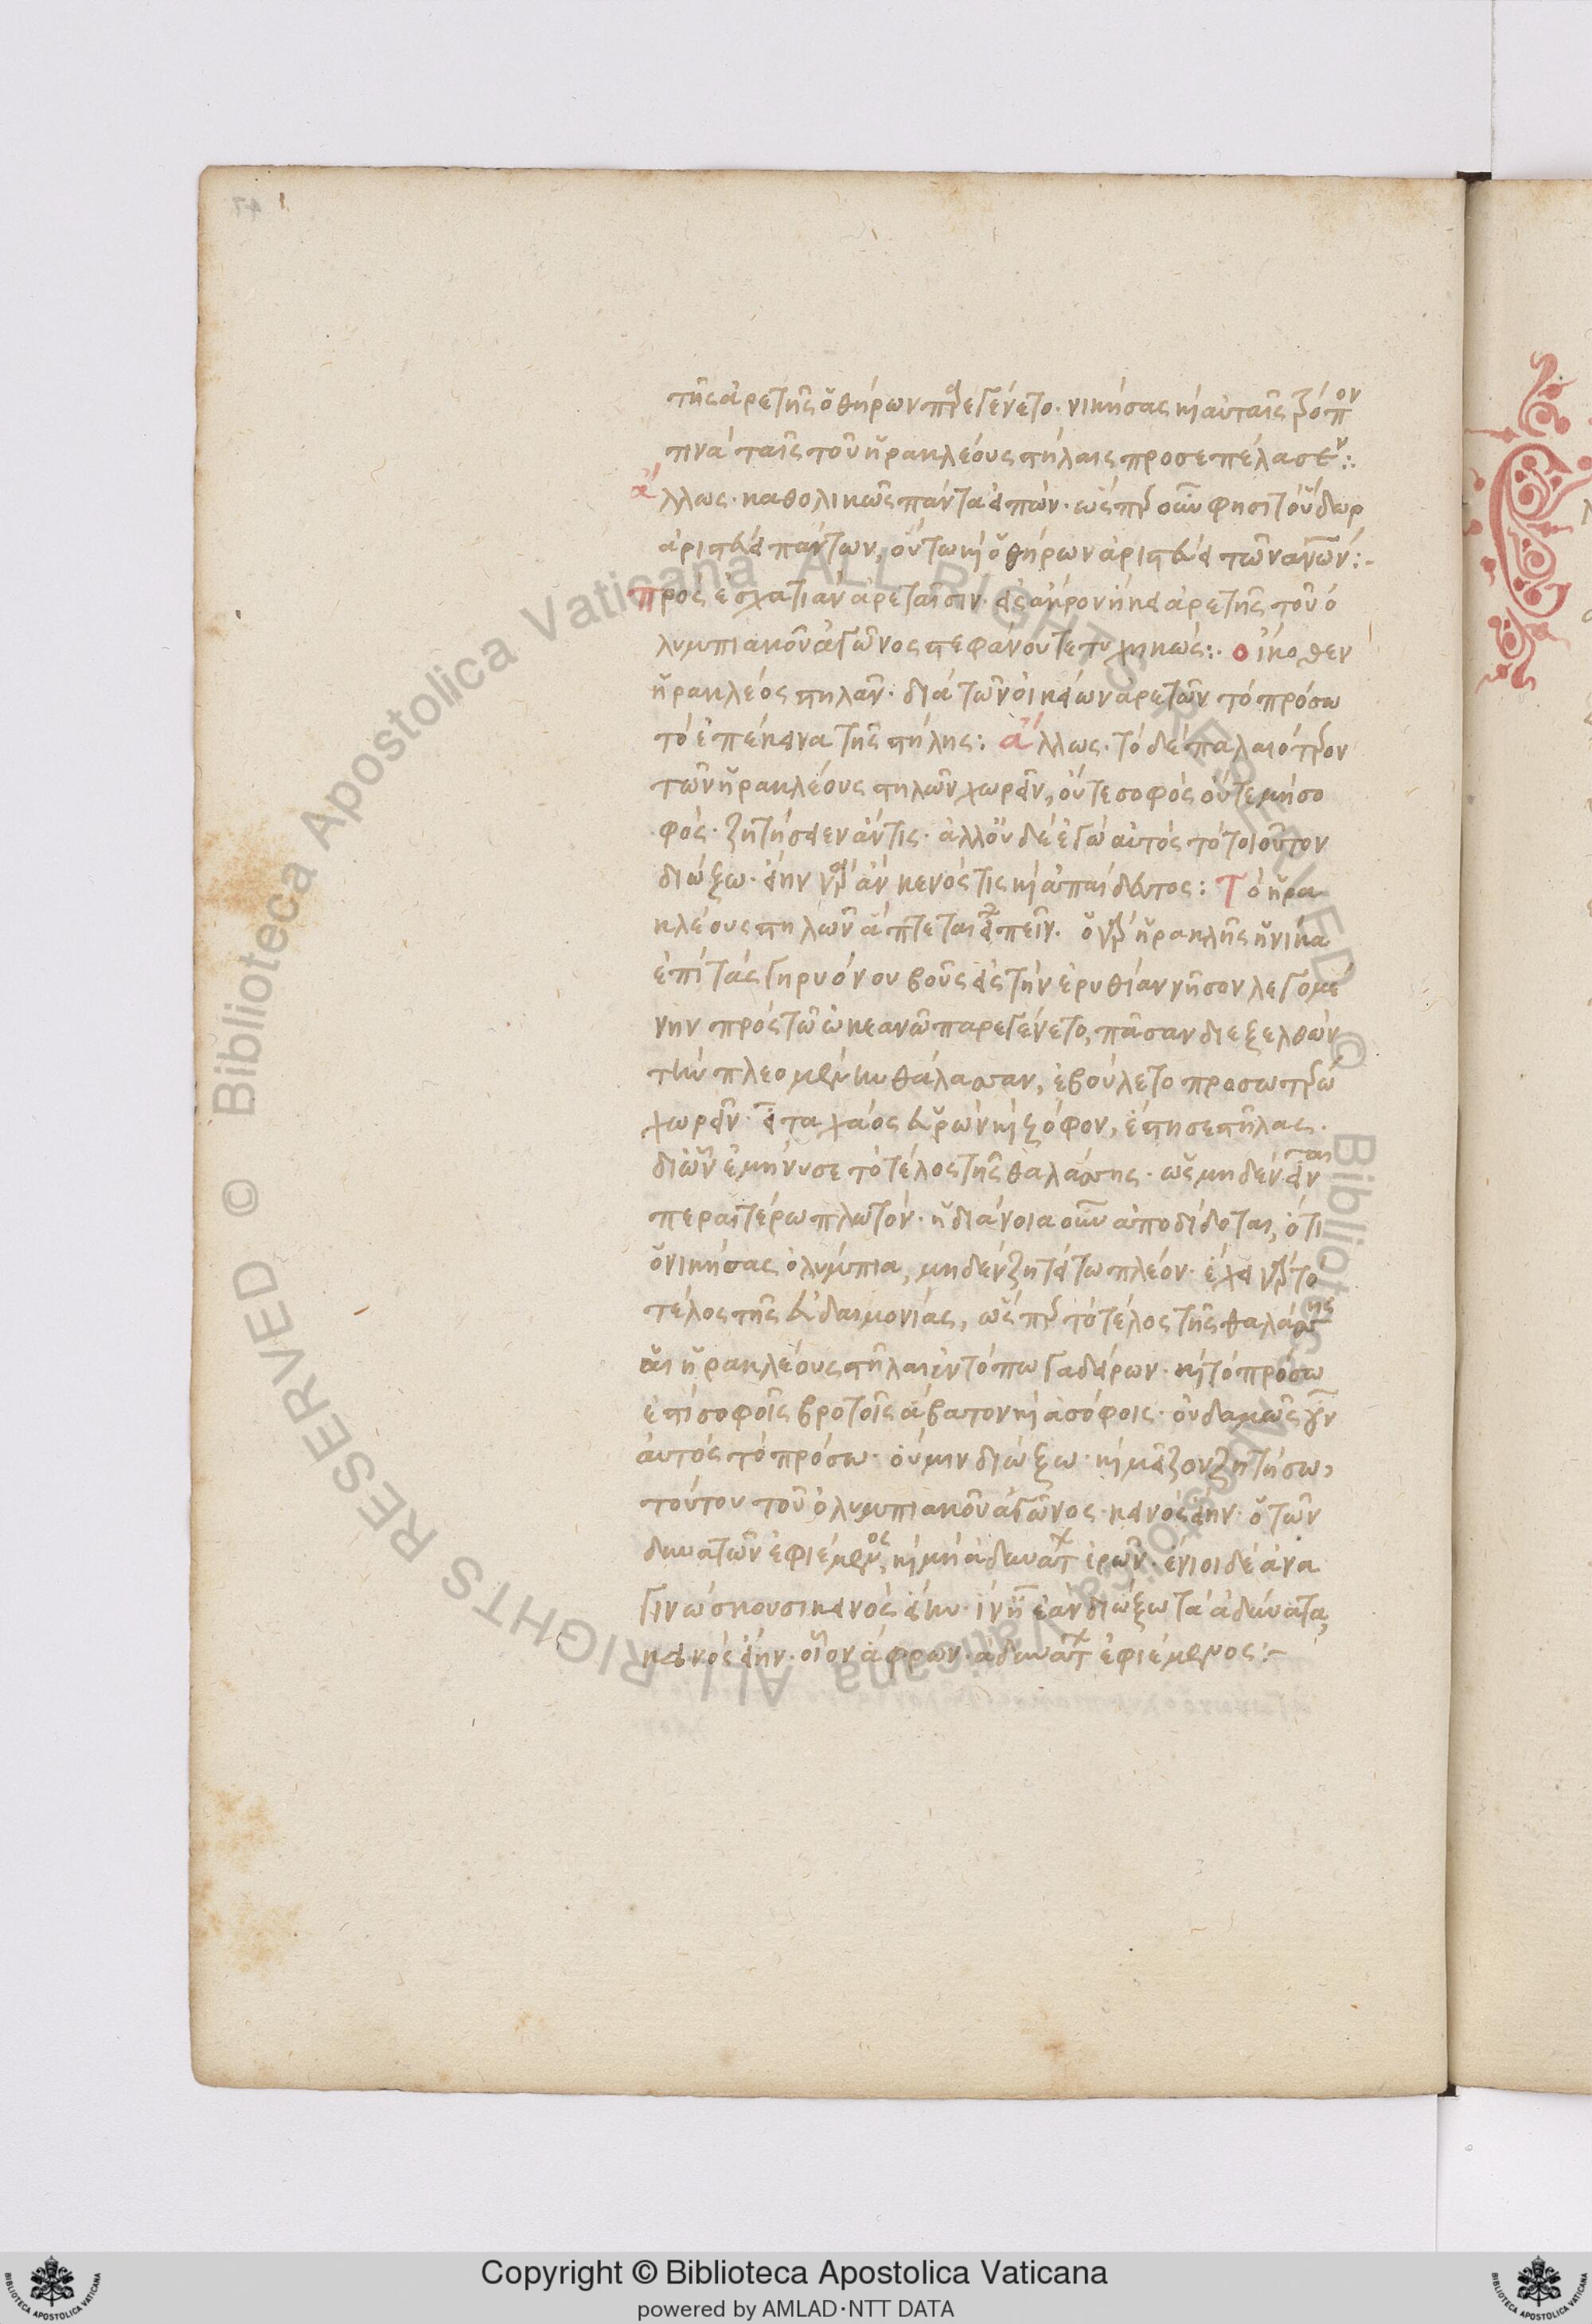 τῆς ἀρετῆς ὁ θήρων παρεγένετο· νικήσας καὶ αὐταῖς τρόπον
τινὰ ταῖς τοῦ ἡρακλέους στήλαις προσεπέλασεν:
ἄλλως· καθολικῶς πάντα εἰπών· ὥσπερ οὖν φησι τὸ ὕδωρ
ἀριστεύει πάντων, οὕτω καὶ ὁ θήρων ἀριστεύει τῶν ἀνων:
πρὸς ἐσχατιὰν ἀρεταῖσιν· εἰς ἄκρον ἥκει ἀρετῆς τοῦ ὀ
λυμπιακοῦ ἀγῶνος στεφάνου τετυχηκώς: οἴκοθεν
ἡρακλέος στηλᾶν· διὰ τῶν οἰκείων ἀρετῶν τὸ πρόσω
τὸ ἐπέκεινα τῆς στήλης: ἄλλως· τὸ δὲ παλαιότερον
τῶν ἡρακλέους στηλῶν χωρεῖν, οὔτε σοφὸς οὔτε μὴ σο
φός· ζητήσειεν ἄν τις· ἀλλ' οὐδὲ ἐγὼ αὐτὸς τὸ τοιοῦτον
διώξω· εἴην γὰρ ἂν κενός τις καὶ ἀπαίδευτος: Τὸ ἡρα
κλέους στηλῶν ἅπτεται εἰπεῖν· ὁ γὰρ ἡρακλῆς ἡνίκα
ἐπὶ τὰς γηρυόνου βοῦς εἰς τὴν ἐρυθίαν νῆσον λεγομέ
νην πρὸς τῷ ὠκεανῷ παρεγένετο, πᾶσαν διεξελθὼν
τὴν πλεομένην θάλασσαν, ἐβούλετο προσωτέρω
χωρεῖν· εἶτα χάος εὑρὼν καὶ ζόφον, ἔστησε στήλας·
δι' ὧν ἐμήνυσε τὸ τέλος τῆς θαλάσσης· ὡς μηδὲν εἶναι
περαιτέρω πλωτόν· ἡ διάνοια οὖν ἀποδίδοται, ὅτι
ὁ νικήσας ὀλύμπια, μηδὲν ζητείτω πλέον· ἔχει γὰρ τὸ
τέλος τῆς εὐδαιμονίας, ὥσπερ τὸ τέλος τῆς θαλάσσης
αἱ ἡρακλέους στῆλαι ἐν τόπω γαδείρων· καὶ τὸ πρόσω
ἐστὶ σοφοῖς βροτοῖς ἄβατον καὶ ἀσόφοις· οὐδαμῶς γοῦν
αὐτὸς τὸ πρόσω· οὔ μιν διώξω· καὶ μεῖζον ζητήσω,
τούτου τοῦ ὀλυμπιακοῦ ἀγῶνος· κεινὸς εἴην· ὁ τῶν
δυνατῶν ἐφιέμενος, καὶ μὴ ἀδυνάτων ἐρῶν· ἔνιοι δὲ ἀνα
γινώσκουσι κεινὸς εἴην· ἐὰν διώξω τὰ ἀδύνατα,
κεινὸς εἴην· οἷον ἄφρων· ἀδυνάτων ἐφιέμενος:
Copyright © Biblioteca Apostolica Vaticana
powered by AMLAD·NTT DATA